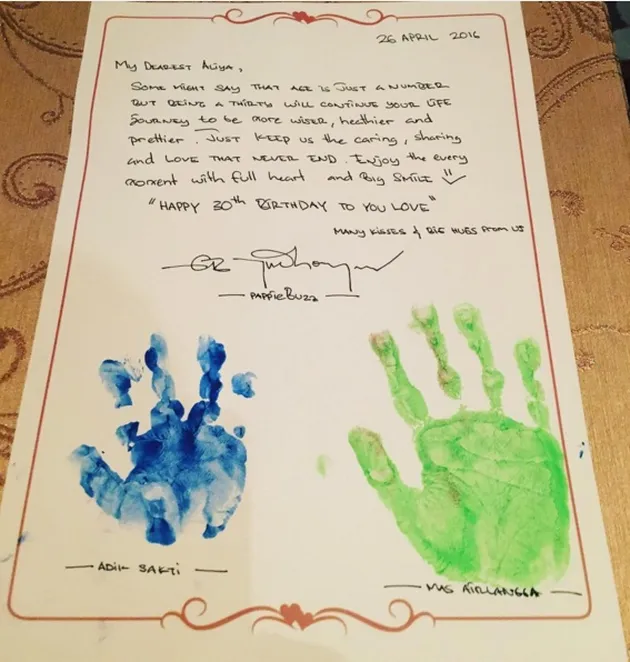 26 APRIL 2016
MY DEAREST ALIYA,
SOME MIGHT SAY THAT AGE IS JUST A NUMBER
BUT BEING A THIRTY WILL CONTINUE YOUR LIFE
JOURNEY to be more wiser, healthier and
prettier. JUST KEEP US the caring, sharing
and LOVE THAT NEVER END. Enjoy the every
moment with full heart and Big SMILE
"HAPPY 30th BIRTHDAY TO YOU LOVE"
MANY KISSES & BIG HUGS FROM US
PAPPIEBUZZ
ADIK SAKTI
MAS AIRLANGGA